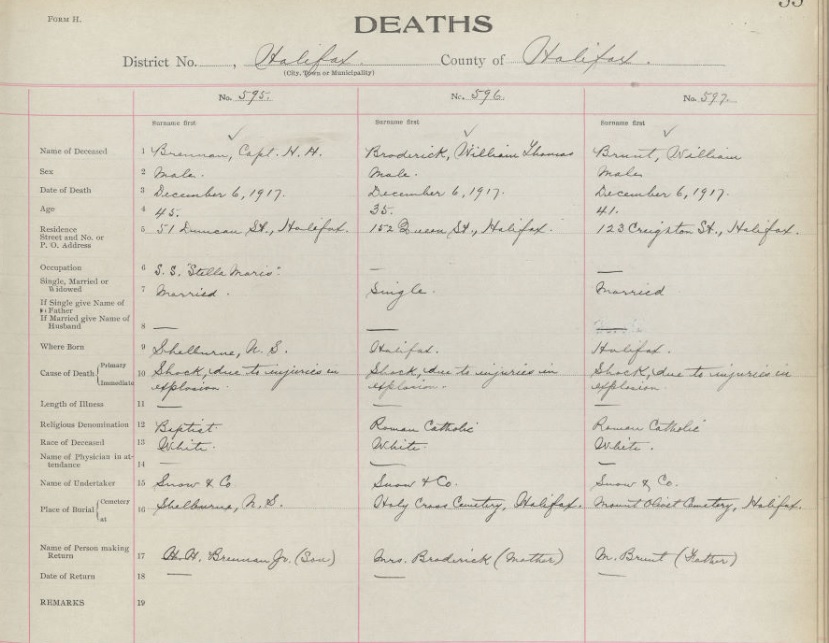 FORM H.
DEATHS
District No. , Halifax. County of Halifax.
(City, Town or Municipality)
No. 595. No. 596. No. 597.
Surname first Surname first Surname first
Name of Deceased 1 Brennan, Capt. H. H. Broderick, William Thomas Brunt, William
Sex 2 Male. Male. Male
Date of Death 3 December 6, 1917. December 6, 1917. December 6, 1917.
Age 4 45. 35. 41.
Residence 5 51 Duncan St., Halifax. 152 Queen St., Halifax. 123 Creighton St., Halifax.
Street and No. or
P. O. Address
Occupation 6 S.S. "Stella Maris". — —
Single, Married or
Widowed 7 Married. Single. Married
If Single give Name of
Father
If Married give Name of
Husband 8 — — —
Where Born 9 Shelburne, N. S. Halifax. Halifax.
Cause of Death Primary Immediate 10 Shock, due to injuries in Shock, due to injuries in Shock, due to injuries in
explosion. explosion. explosion.
Length of Illness 11 — — —
Religious Denomination 12 Baptist Roman Catholic Roman Catholic
Race of Deceased 13 White. White. White.
Name of Physician in at-
tendance 14 — — —
Name of Undertaker 15 Snow & Co. Snow & Co. Snow & Co.
Place of Burial Cemetery at 16 Shelburne, N. S. Holy Cross Cemetery, Halifax. Mount Olivet Cemetery, Halifax.
Name of Person making
Return 17 H. H. Brennan Jr. (Son) Mrs. Broderick (Mother) M. Brunt (Father)
Date of Return 18 — — —
REMARKS 19